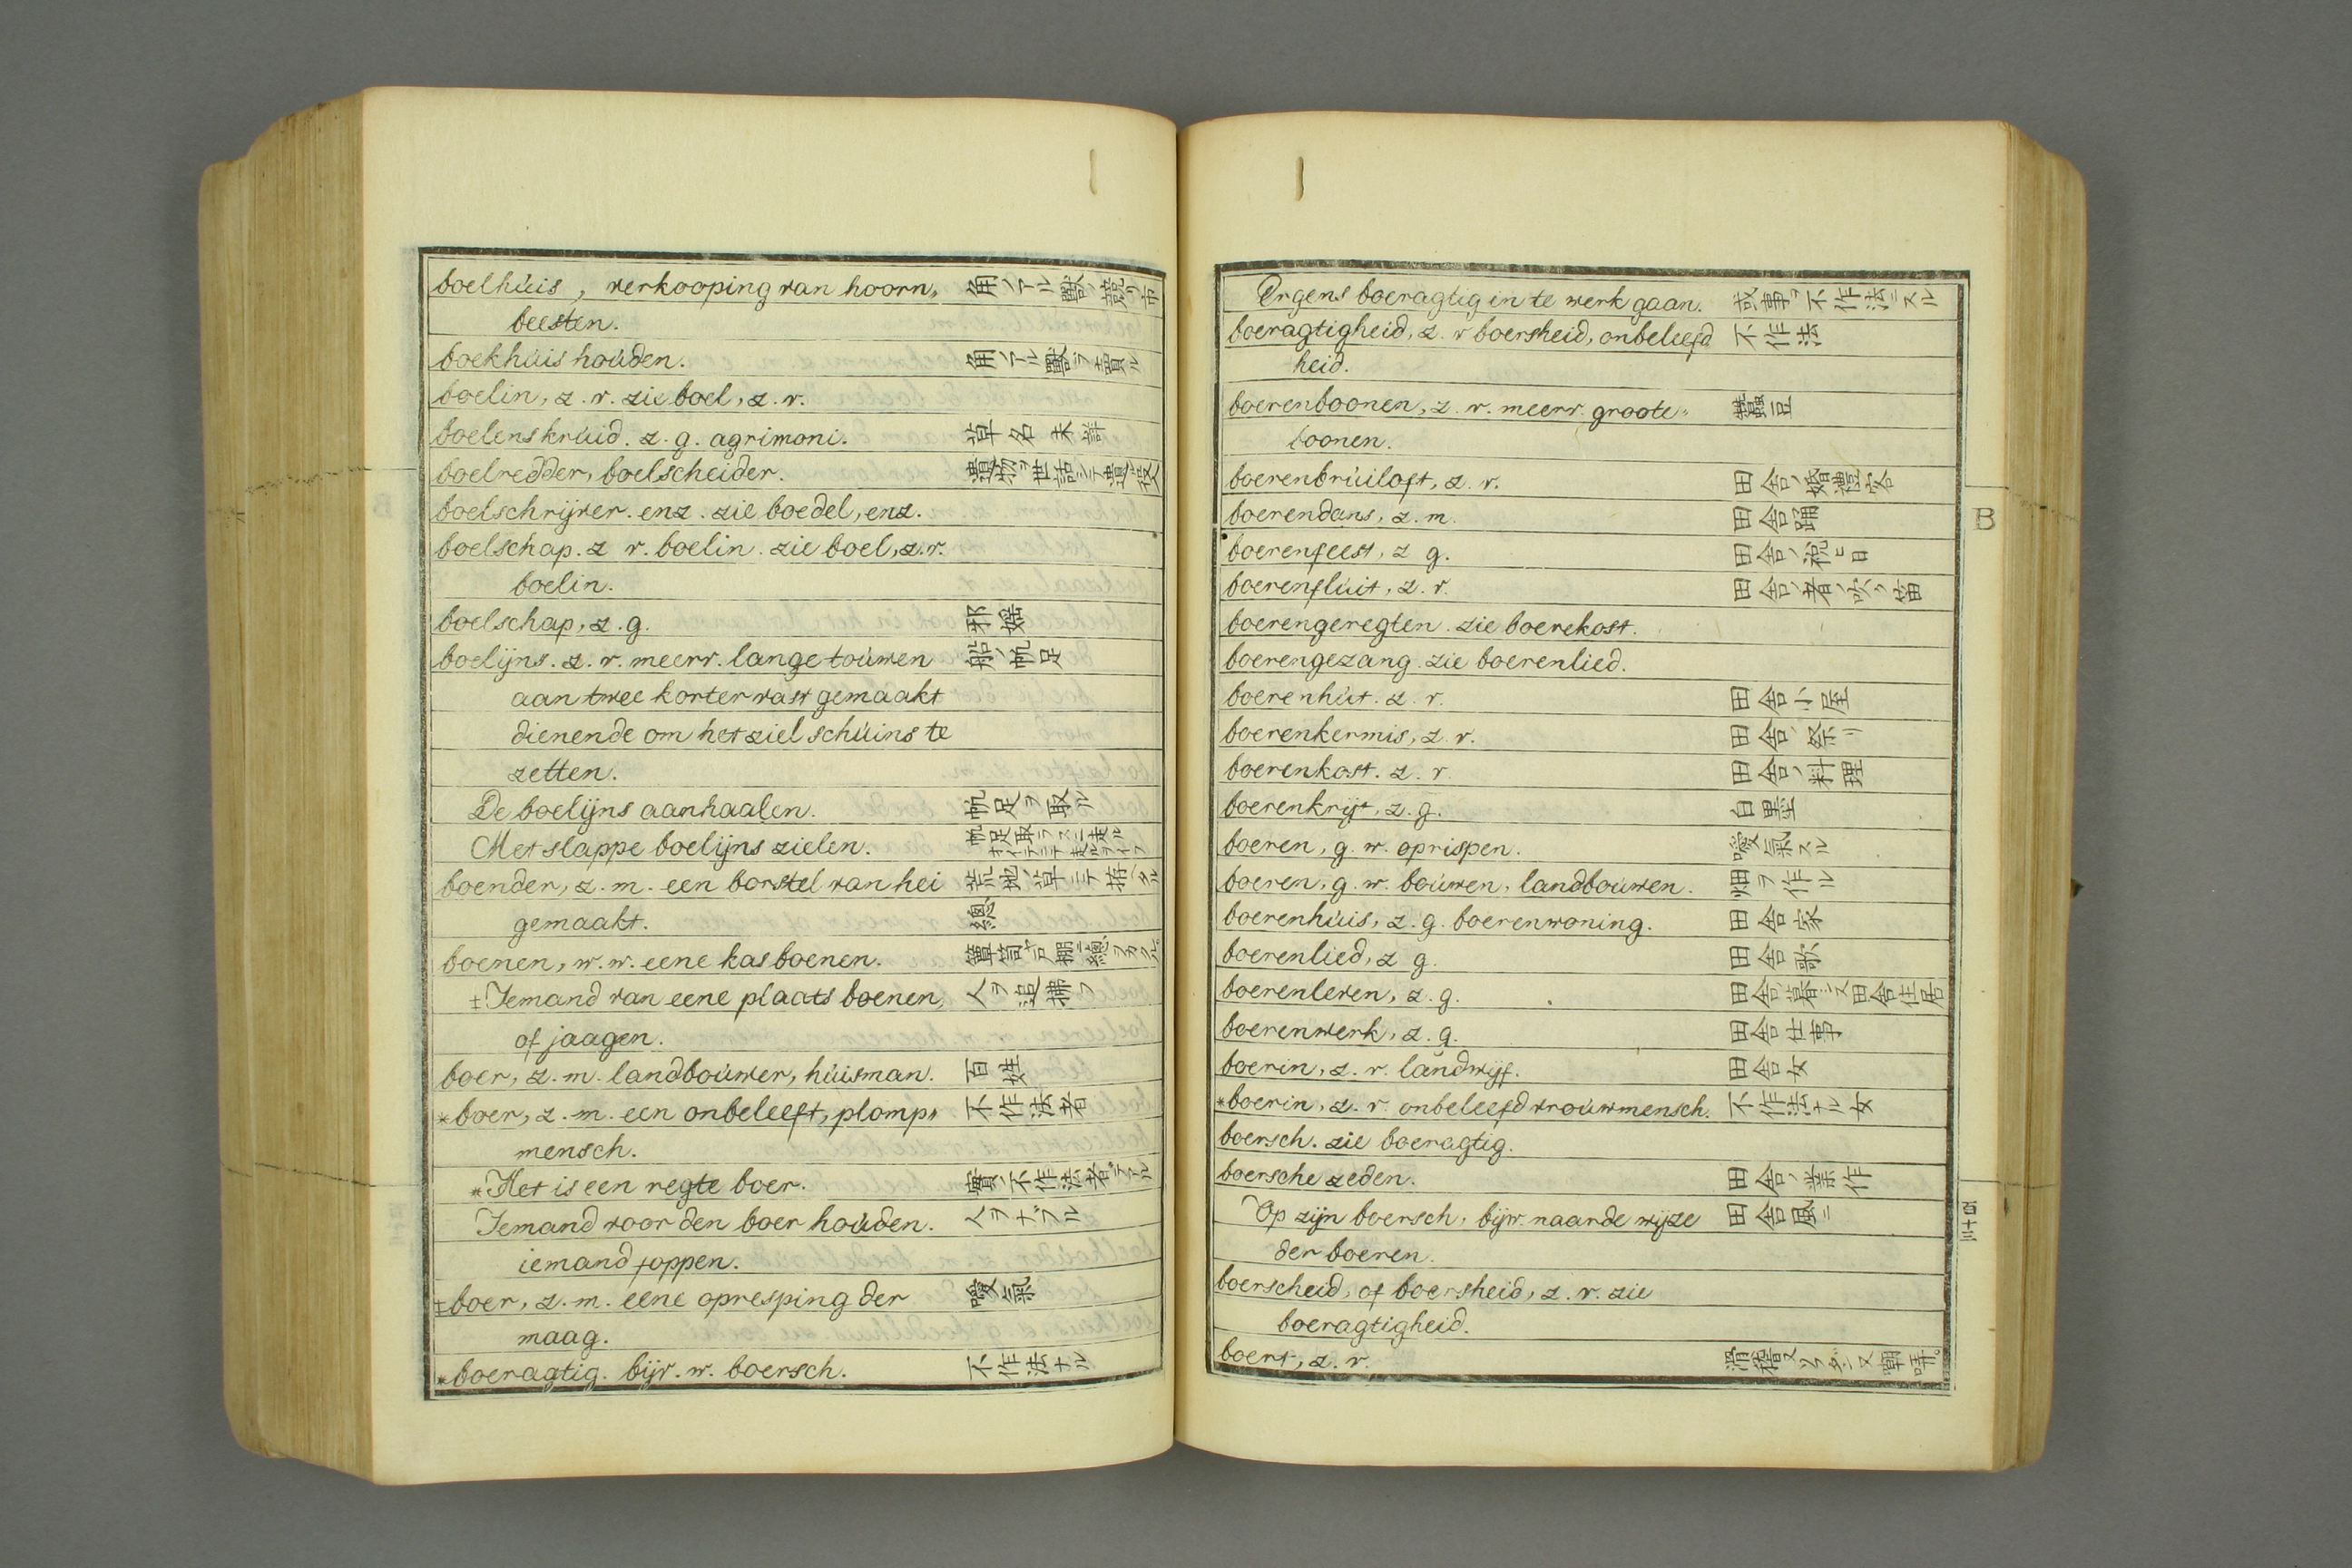 boelhúis, verkooping van hoorn„ 角ノアル獸ノ競リ市
beesten.
boekhúis hoúden. 角ノアル獸ヲ賣ル
boelin, z. v. zie boel, z. v.
boelenskrúid. z. g. agrimoni. 草名未詳
boelredder, boelscheider. 遺物ヲ世話シテ遣ル役
boelschrijver. enz. zie boedel, enz.
boelschap. z v. boelin. zie boel, z. v.
boelin.
boelschap, z. g. 邪婬
boelijns. z. v. meerv. lange toúwen 船ノ帆足
aan twee korter vast gemaakt
dienende om het ziel schúins te
zetten.
De boelijns aanhaalen. 帆足ヲ取ル
Met slappe boelijns zielen. 帆足取ラズニ走ル
boender, z. m. een borstel van hei 荒地ノ草ニテ拵ヘタル
gemaakt. 總
boenen, w. w. eene kas boenen. 簞笥戸棚
‡Iemand van eene plaats boenen, 人ヲ追拂フ
of jaagen.
boer, z. m. landboúwer, húisman. 百姓
*boer, z. m. een onbeleeft, plomp„ 不作法者
mensch.
*Het is een regte boer. 實ノ不作法者デアル
Iemand voor den boer hoúden. 人ヲナブル
iemand foppen.
‡boer, z. m. eene opresping der 噯氣
maag.
*boeragtig. bijv. w. boersch. 不作法ナル
Ergens boeragtig in te werk gaan. 或事ヲ不作法ニスル
boeragtigheid, z. v boersheid, onbeleefd 不作法
heid.
boerenboonen, z. v. meerv. groote„ 蠶豆
boonen.
boerenbrúiloft, z. v. 田舎ノ婚禮客
boerendans, z. m. 田舎踊
boerenfeest, z g. 田舎ノ祝ヒ日
boerenflúit, z. v. 田舎ノ者ノ吹ク笛
boerengeregten. zie boerekost.
boerengezang. zie boerenlied.
boerenhút. z. v. 田舎小屋
boerenkermis, z. v. 田舎ノ祭リ
boerenkost. z. v. 田舎ノ料理
boerenkrijt, z. g. 白墨
boeren, g. w. oprispen. 噯氣スル
boeren, g. w. boúwen, landboúwen. 畑ヲ作ル
boerenhúis, z. g. boerenwoning. 田舎家
boerenlied, z g. 田舎歌
boerenleven, z. g. 田舎ノ暮シ又田舎住居
boerenwerk, z. g. 田舎仕事
boerin, z. v. landwijf. 田舎女
*boerin, z. v. onbeleefd vroúwmensch. 不作法ナル女
boersch. zie boeragtig.
boersche zeden. 田舎ノ業作
Op zijn boersch, bijw. naar de wijze 田舎風ニ
der boeren.
boerscheid, of boersheid, z. v. zie
boeragtigheid.
boert, z. v. 滑稽又ソウダン又嘲哢
B
百十三